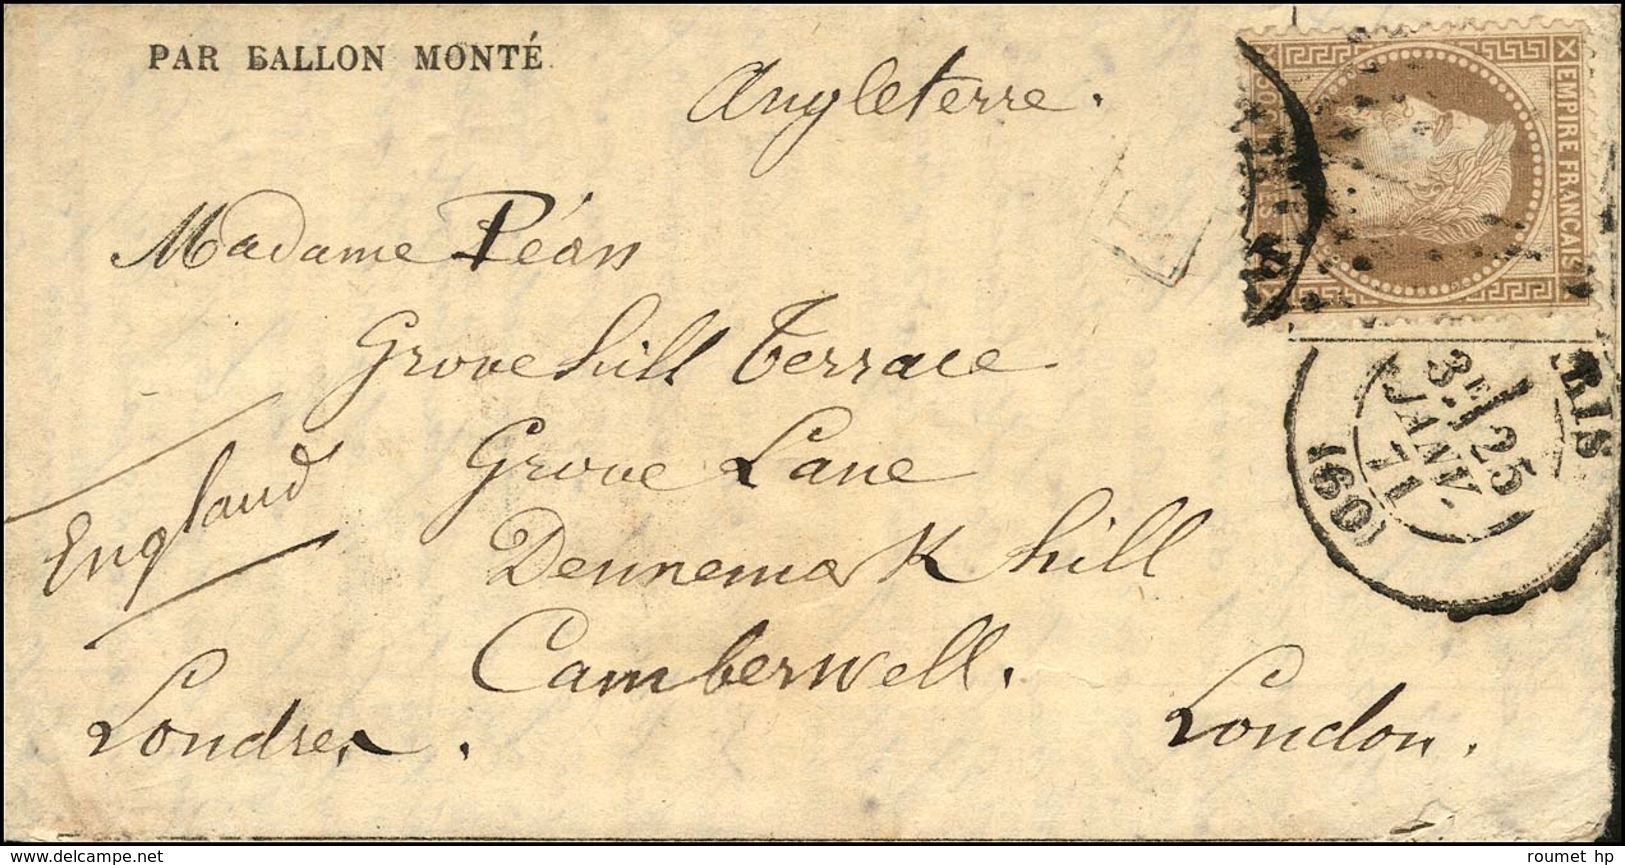 PAR BALLON MONTÉ
Angleterre.
EMPIRE FRANÇAIS
Madame Péan
Grove hill Terrace
Grove Lane
Dennemark hill
Camberwell.
England
Londres.
London.
3E
25
JANV.
71
(60)
roumet hp